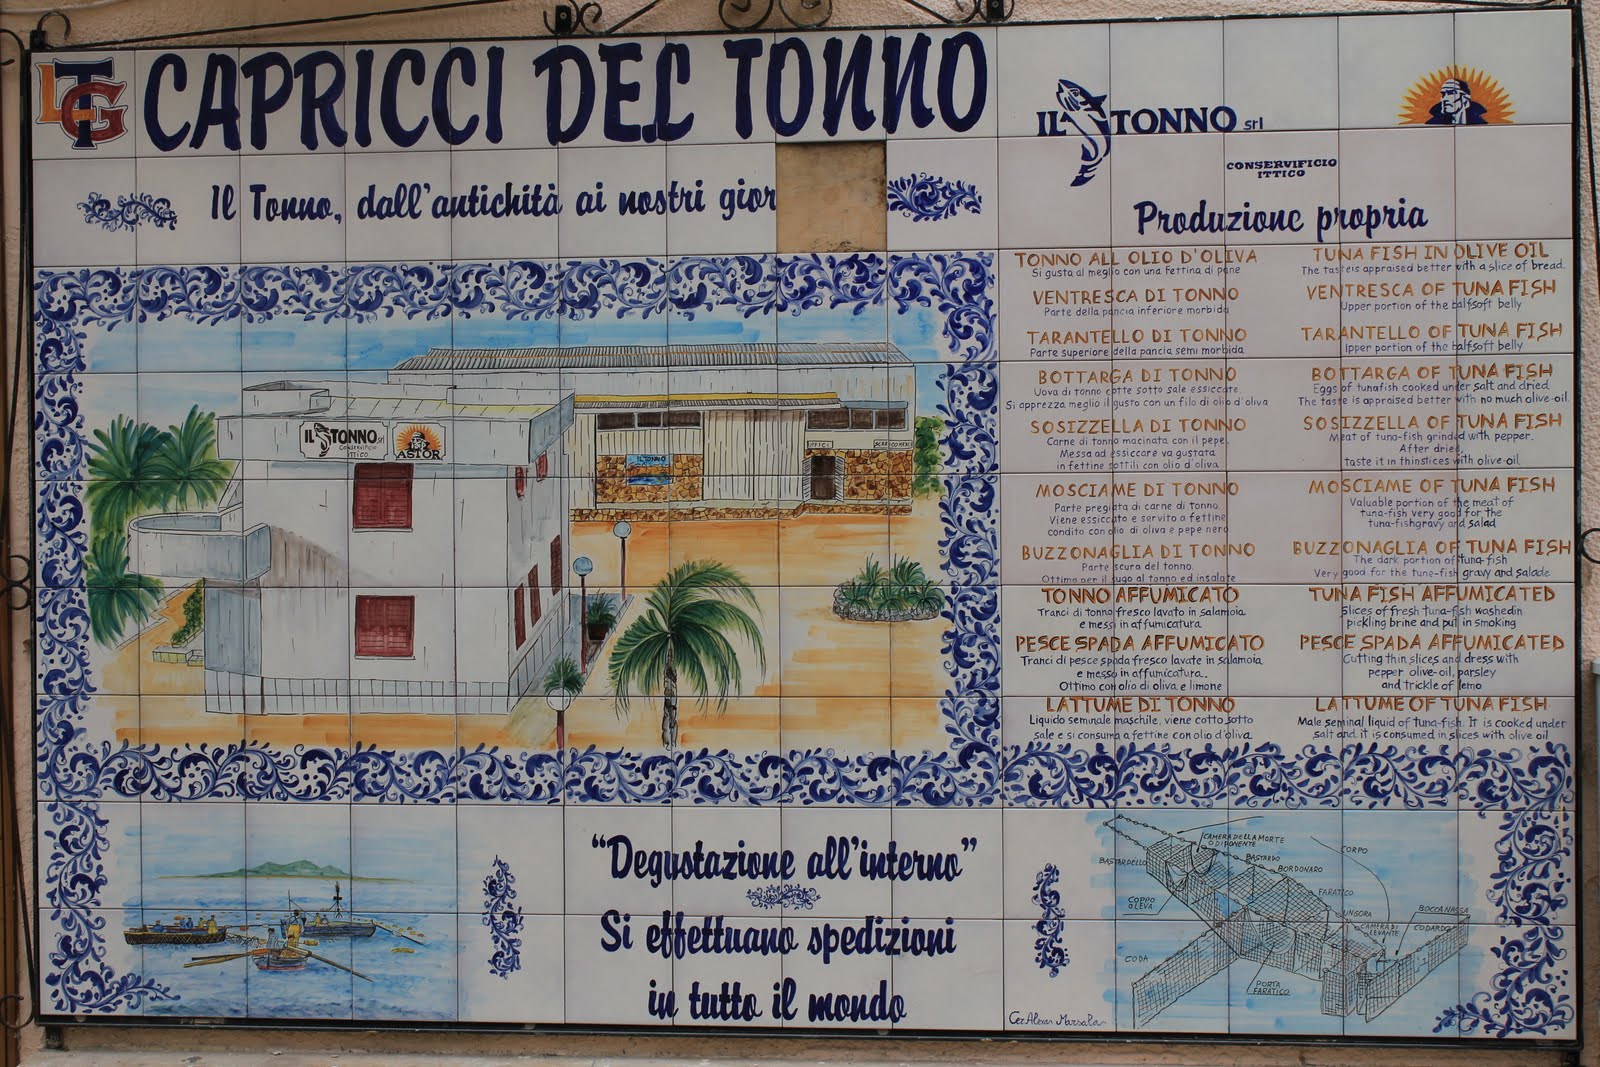 LTG
CAPRICCI DEL TONNO
Il Tonno, dall'antichità ai nostri gior
IL TONNO srl
CONSERVIFICIO
ITTICO
Produzione propria
TONNO ALL OLIO D'OLIVA
Si gusta al meglio con una fettina di pane
VENTRESCA DI TONNO
Parte della pancia inferiore morbida
TARANTELLO DI TONNO
Parte superiore della pancia semi morbida
BOTTARGA DI TONNO
Uova di tonno cotte sotto sale essiccate
Si apprezza meglio il gusto con un filo di olio d'oliva
SOSIZZELLA DI TONNO
Carne di tonno macinata con il pepe.
Messa ad essiccare va gustata
in fettine sottili con olio d'oliva
MOSCIAME DI TONNO
Parte pregiata di carne di tonno.
Viene essiccato e servito a fettine
condito con olio di oliva e pepe nero
BUZZONAGLIA DI TONNO
Parte scura del tonno.
Ottimo per il sugo al tonno ed insalate
TONNO AFFUMICATO
Tranci di tonno fresco lavato in salamoia
e messi in affumicatura.
PESCE SPADA AFFUMICATO
Tranci di pesce spada fresco lavate in salamoia
e messo in affumicatura.
Ottimo con olio di oliva e limone
LATTUME DI TONNO
Liquido seminale maschile, viene cotto sotto
sale e si consuma a fettine con olio d'oliva
TUNA FISH IN OLIVE OIL
The taste is appraised better with a slice of bread.
VENTRESCA OF TUNA FISH
Upper portion of the halfsoft belly
TARANTELLO OF TUNA FISH
Ipper portion of the halfsoft belly
BOTTARGA OF TUNA FISH
Eggs of tunafish cooked under salt and dried
The taste is appraised better with no much olive-oil.
SOSIZZELLA OF TUNA FISH
Meat of tuna-fish grinded with pepper.
After dried,
taste it in thinslices with olive-oil.
MOSCIAME OF TUNA FISH
Valuable portion of the meat of
tuna-fish very good for the
tuna-fishgravy and salad
BUZZONAGLIA OF TUNA FISH
The dark portion of tuna-fish
Very good for the tune-fish gravy and salade
TUNA FISH AFFUMICATED
Slices of fresh tuna-fish washedin
pickling brine and put in smoking
PESCE SPADA AFFUMICATED
Cutting thin slices and dress with
pepper olive-oil, parsley
and trickle of lemo
LATTUME OF TUNA FISH
Male seminal liquid of tuna-fish. It is cooked under
salt and it is consumed in slices with olive oil
IL TONNO srl
Conservificio
ITTICO
ASTOR
IL TONNO
UFFICI
"Degustazione all'interno"
Si effettuano spedizioni
in tutto il mondo
CAMERA DELLA MORTE
O DIPONENTE
CORPO
BASTARDELLO
BASTARDO
BORDONARO
FARATICO
COPPO
O LEVA
UNGORA
BOCCA NASSA
CAMERA DI
LEVANTE
CODARDO
CODA
PORTA
FARATICO
Marsala